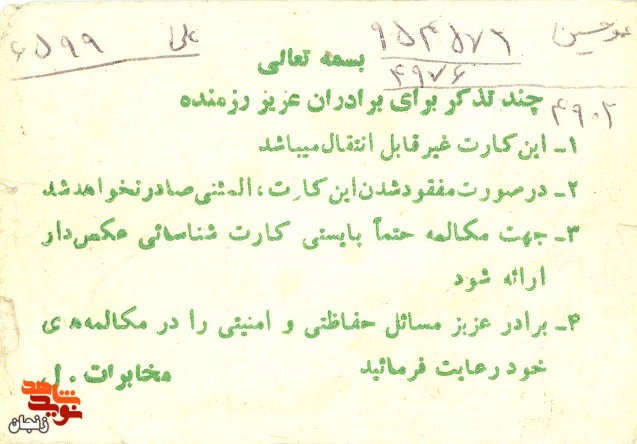 عمو حسین
۹۵۴۵۷۲
علی
۶۵۹۹
۴۹۷۶
۴۹۰۲
بسمه تعالی
چند تذکر برای برادران عزیز رزمنده
۱- این کارت غیر قابل انتقال میباشد
۲- در صورت مفقود شدن این کارت، المثنی صادر نخواهد شد
۳- جهت مکالمه حتماً بایستی کارت شناسائی عکس‌دار
ارائه شود
۴- برادر عزیز مسائل حفاظتی و امنیتی را در مکالمه‌های
خود رعایت فرمائید
مخابرات
نوید شاهد
زنجان